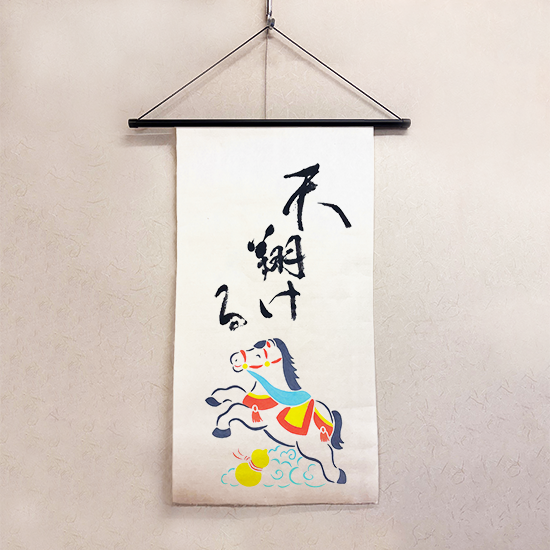 天翔け
る